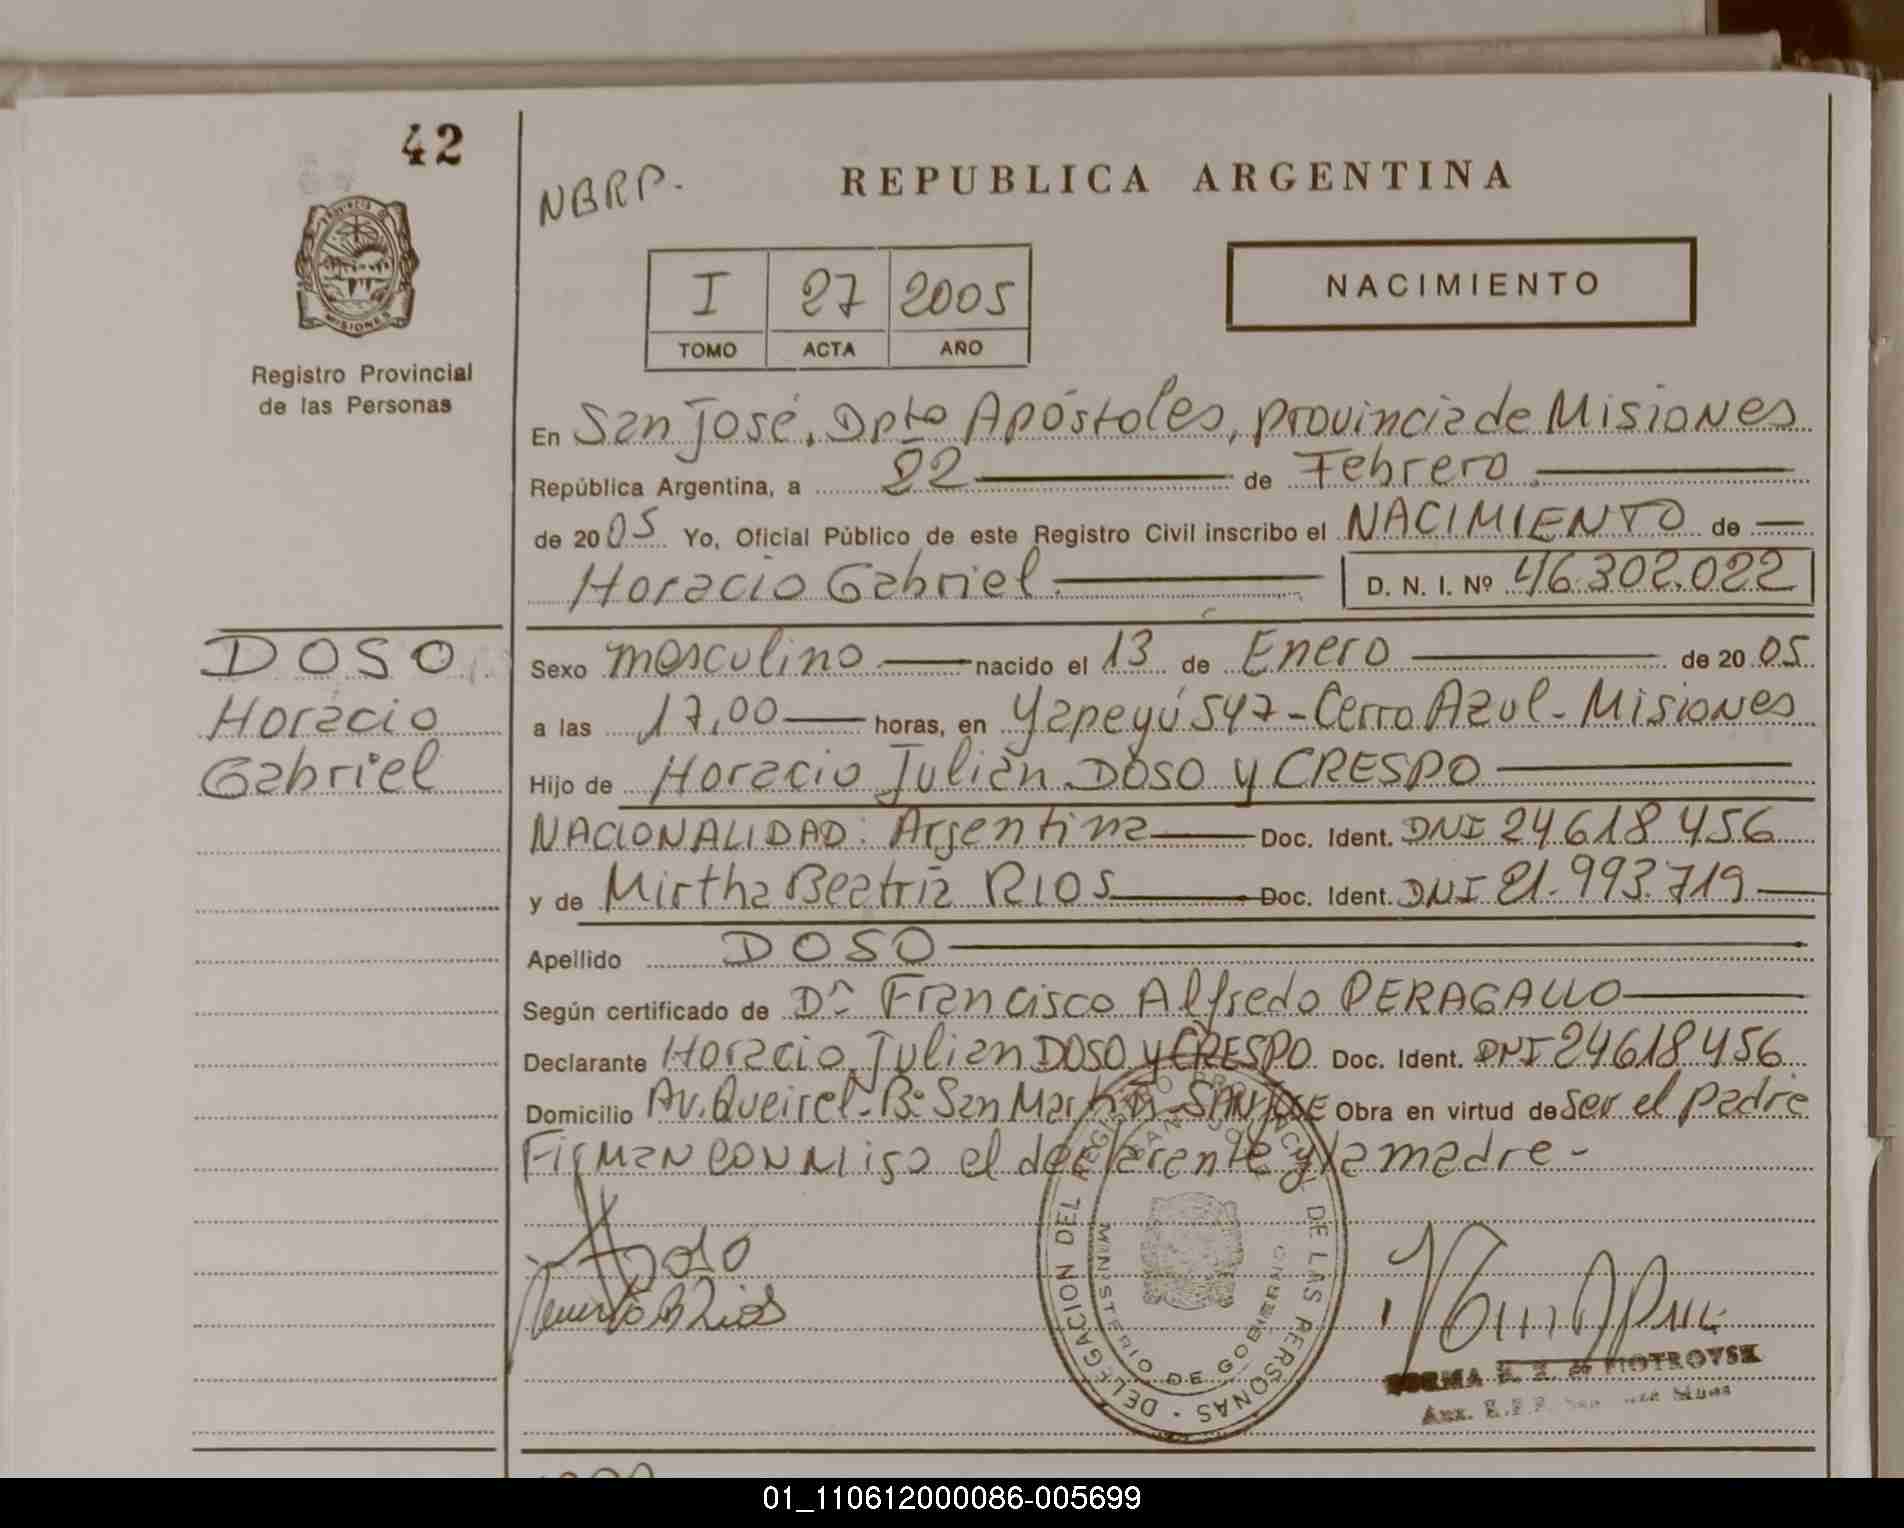 42
NBRP.
REPUBLICA ARGENTINA
PROVINCIA DE
MISIONES
I 27 2005
TOMO ACTA AÑO
NACIMIENTO
Registro Provincial
de las Personas
En San José, Dpto Apóstoles, provincia de Misiones
República Argentina, a 22 de Febrero
de 2005 Yo, Oficial Público de este Registro Civil inscribo el NACIMIENTO de
Horacio Gabriel. D. N. I. Nº 46.302.022
DOSO
Horacio
Gabriel
Sexo masculino nacido el 13 de Enero de 2005
a las 17,00 horas, en Yapeyú 547-Cerro Azul-Misiones
Hijo de Horacio Julián DOSO y CRESPO
NACIONALIDAD: Argentina Doc. Ident. DNI 24.618.456
y de Mirtha Beatriz RIOS Doc. Ident. DNI 21.993.719
Apellido DOSO
Según certificado de Dr Francisco Alfredo PERAGALLO
Declarante Horacio Julian DOSO y CRESPO Doc. Ident. DNI 24618.456
Domicilio Av. Queirel-Bº San Martin-SAN JOSE Obra en virtud de ser el padre
Firman conmigo el declarante y la madre-
Doso
B Rios
DELEGACION DEL REGISTRO PROVINCIAL DE LAS PERSONAS
SAN JOSE
MINISTERIO DE GOBIERNO
NORMA de PIOTROVSK
Aux.
01_110612000086-005699